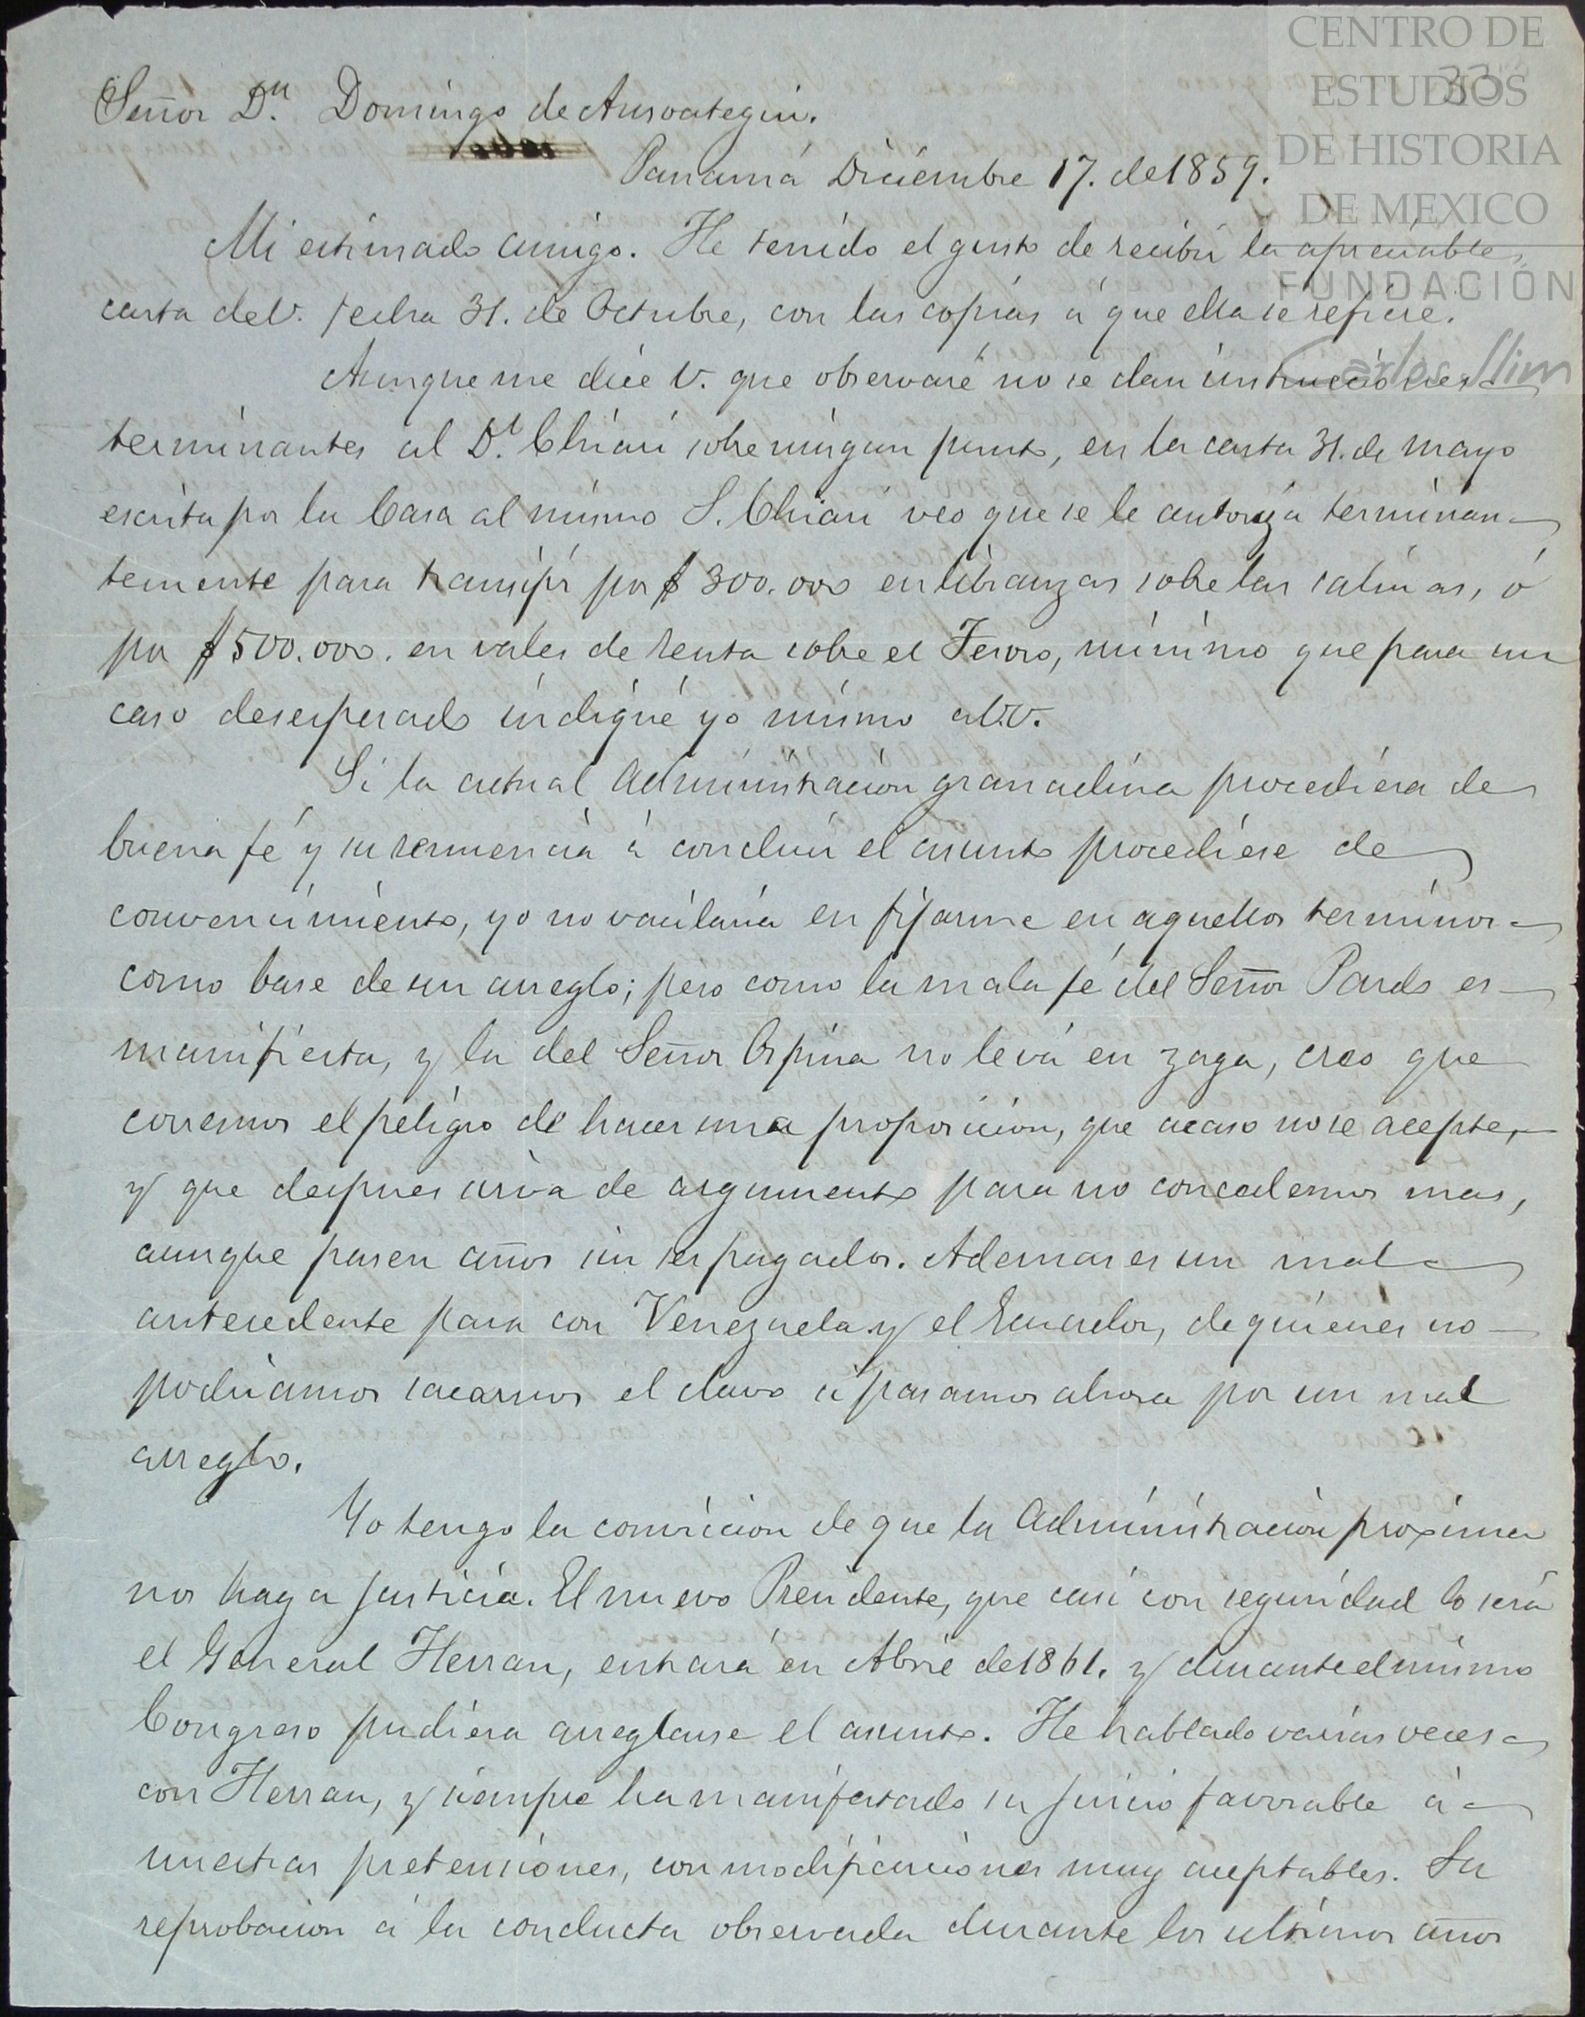 CENTRO DE
ESTUDIOS
DE HISTORIA
DE MEXICO
FUNDACIÓN
Carlos Slim
33
Señor Dn. Domingo de Ansoategui.
Panamá Diciembre 17. de 1859.
Mi estimado amigo. He tenido el gusto de recibir la apreciable
carta de V. fecha 31. de Octubre, con las copias á que ella se refiere.
Aunque me dice V. que observaré no se dan instrucciones
terminantes al Dr. Chiari sobre ningun punto, en la carta 31. de mayo
escrita por la Casa al mismo S. Chiari veo que se le autoriza terminan-
temente para transijir por $ 300.000 en libranzas sobre las salinas, ó
por $ 500.000. en vales de renta sobre el Tesoro, minimo que para un
caso desesperado indiqué yo mismo a VV.
Si la actual Administracion granadina procediera de
buena fé y su renuencia á concluir el asunto procediese de
convencimiento, yo no vacilaria en fijarme en aquellos terminos
como base de un arreglo; pero como la mala fé del Señor Pardo es
manifiesta, y la del Señor Ospina no le vá en zaga, creo que
corremos el peligro de hacer una proposicion, que acaso no se acepte,
y que despues sirva de argumento para no concedernos mas,
aunque pasen años sin ser pagados. Ademas es un mal
antecedente para con Venezuela y el Ecuador, de quienes no
podriamos sacarnos el clavo si pasamos ahora por un mal
arreglo.
Yo tengo la conviccion de que la Administracion proxima
nos haga justicia. El nuevo Presidente, que casi con seguridad lo será
el General Herran, entrará en Abril de 1861. y durante el mismo
Congreso pudiera arreglarse el asunto. He hablado varias veces
con Herran, y siempre ha manifestado su juicio favorable á
nuestras pretensiones, con modificaciones muy aceptables. Su
reprobacion á la conducta observada durante los ultimos años